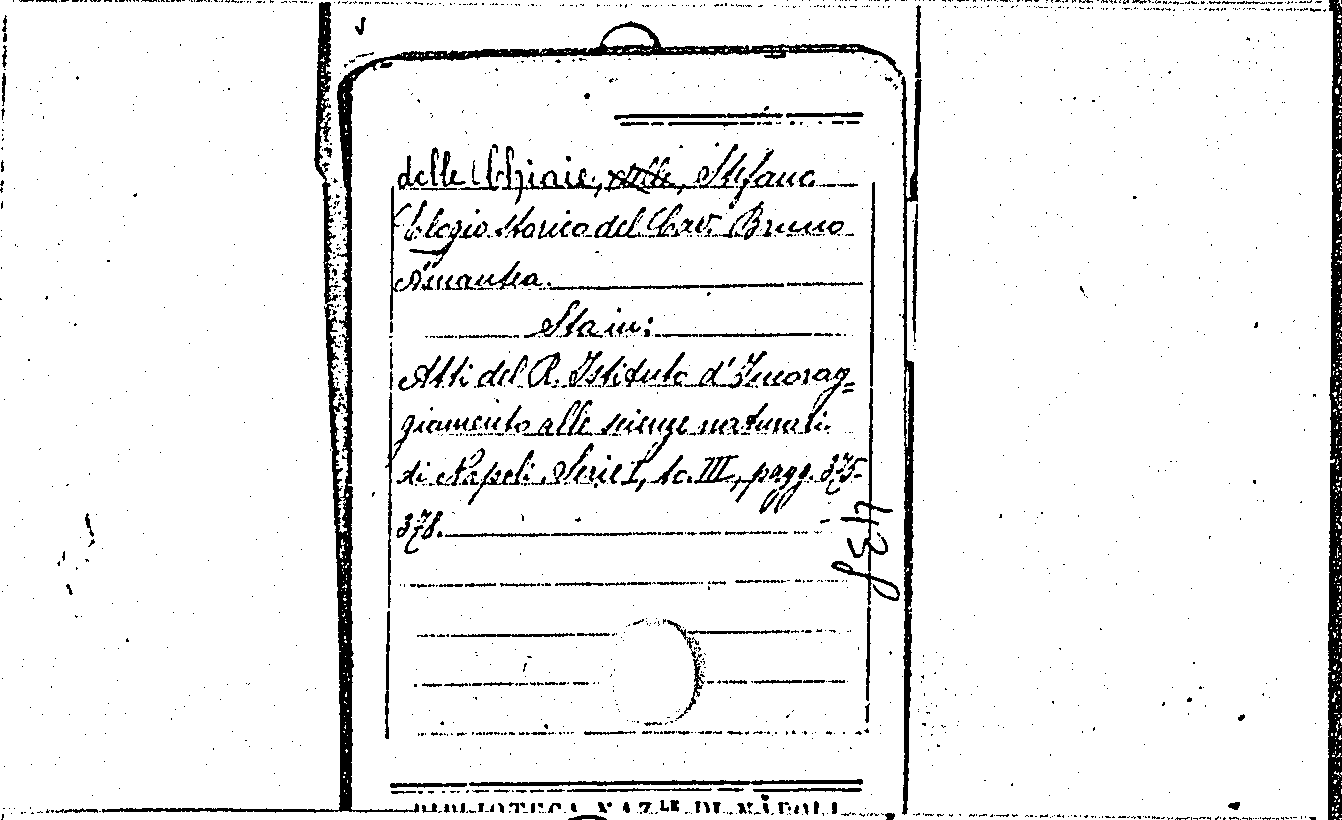 delle Chiaie, delle, Stefano
Elogio storico del Cav. Bruno
Amantea.
Sta in:
Atti del R. Istituto d'Incorag=
giamento alle scienze naturali
di Napoli. Serie I, to. III, pagg. 375-
378.
BIBLIOTECA NAZ.LE DI NAPOLI